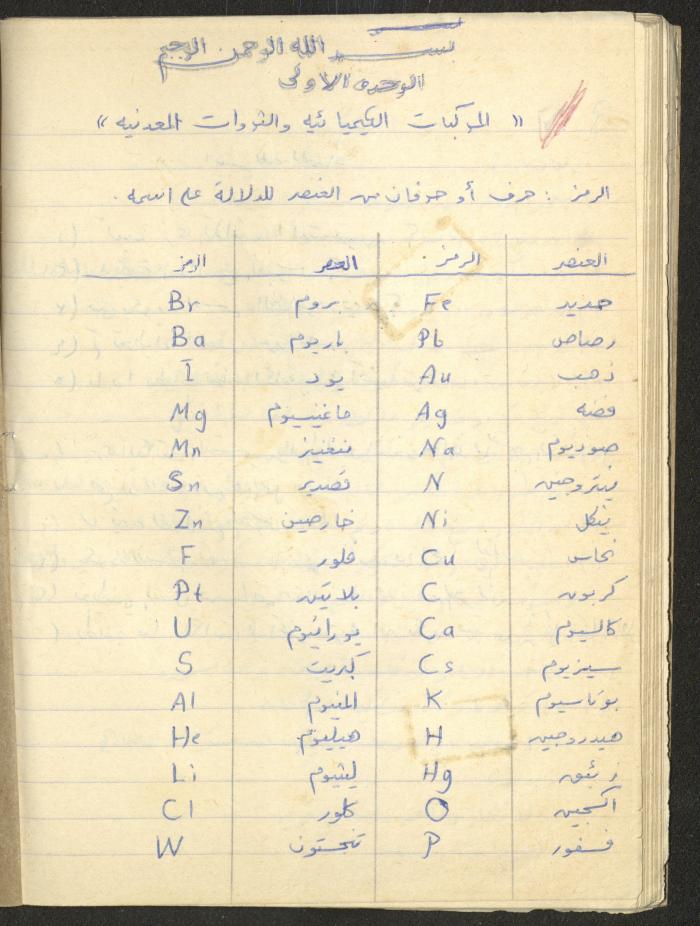 بسم الله الرحمن الرحيم
الوحده الاولى
« المركبات الكيميائيه والثروات المعدنيه »
الرمز : حرف أو حرفان من العنصر للدلالة على اسمه .
العنصر الرمز العنصر الرمز
حديد Fe بروم Br
رصاص Pb باريوم Ba
ذهب Au يود I
فضه Ag ماغنيسيوم Mg
صوديوم Na منغنيز Mn
نيتروجين N قصدير Sn
نيكل Ni خارصين Zn
نحاس Cu فلور F
كربون C بلاتين Pt
كالسيوم Ca يورانيوم U
سيزيوم Cs كبريت S
بوتاسيوم K المنيوم Al
هيدروجين H هيليوم He
زئبق Hg ليثيوم Li
اكسجين O كلور Cl
فسفور P تنجستون W